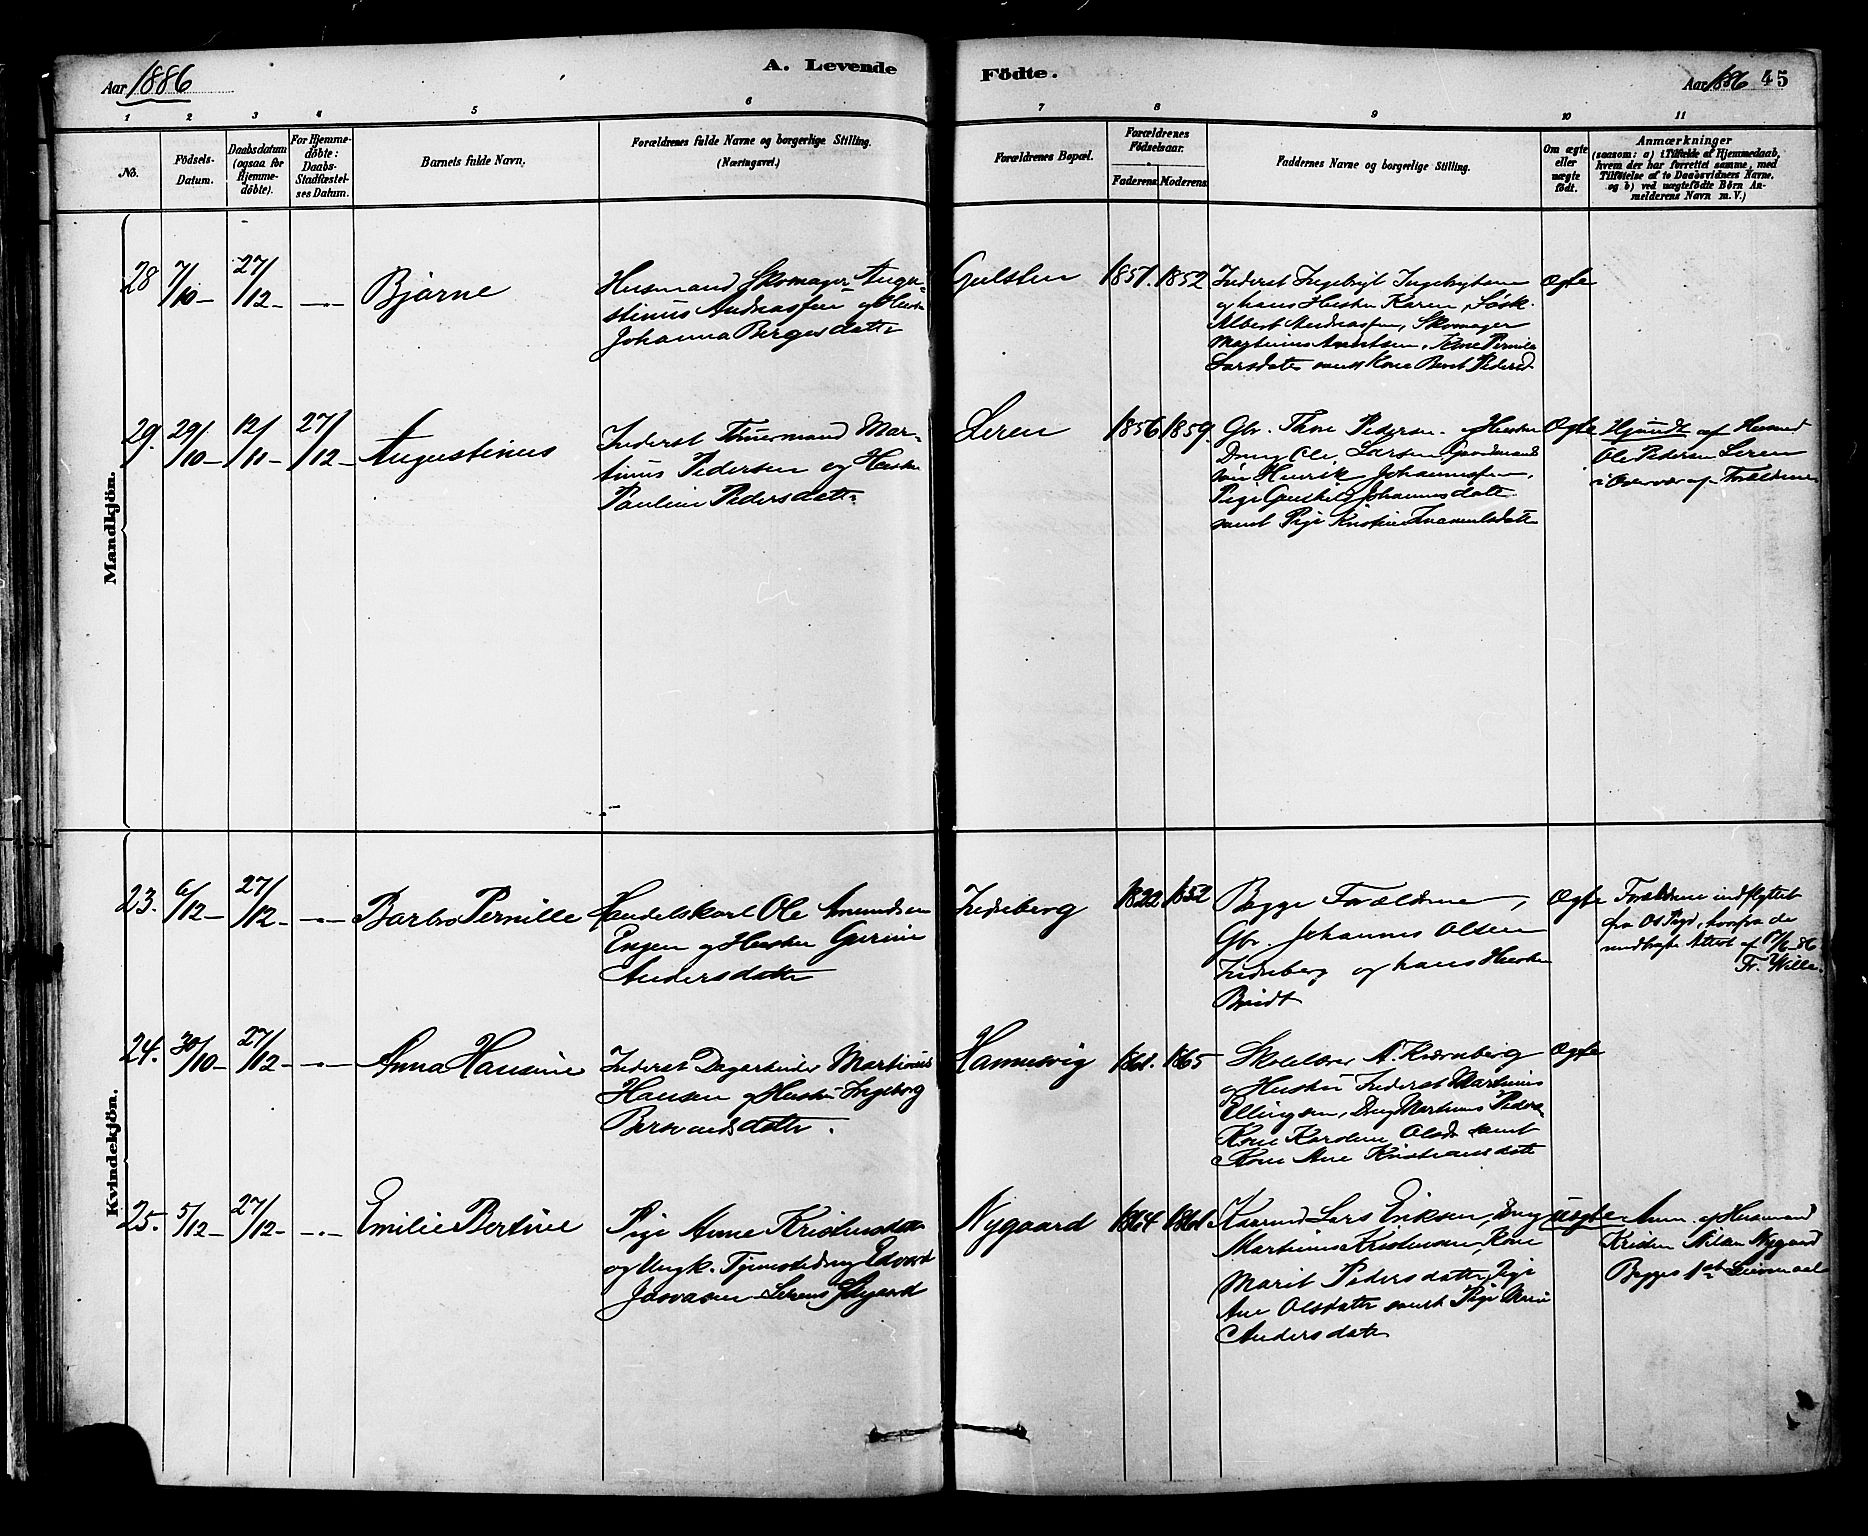 Aar 1886
A. Levende
Födte.
Aar 1886 45
1 2 3 4 5 6 7 8 9 10 11
No.
Födsels-
Datum.
Daabsdatum
(ogsaa for
Hjemme-
döbte).
For Hjemme-
döbte:
Daabs-
Stadfæstel-
ses Datum.
Barnets fulde Navn.
Forældrenes fulde Navne og borgerlige Stilling.
(Næringsvei.)
Forældrenes Bopæl.
Forældrenes
Födselsaar.
Faderens. Moderens.
Faddernes Navne og borgerlige Stilling.
Om ægte
eller
uægte
födt.
Anmærkninger
(saasom: a) i Tilfælde af Hjemmedaab,
hvem der har forrettet samme, med
Tilföielse af to Daabsvidners Navne,
og b) ved uægtefödte Børn An-
melderens Navn m. V.)
Mandkjön.
28 7/10 27/12 Bjarne
Husmand Skomager Augu-
stinus Andreassen og Hustru
Johanna Bergesdatter
Gulsten 1851. 1852
Inderst Ingebrigt Ingebrigtsen
og hans Hustru Karen,
Albert Andreassen, Skomager
Martinus Kone Pernila
Larsdatter samt Kone Berit Pedersd
Ægte
29. 29/10 12/11 27/12 Augustinus
Inderst Mar-
tinus Pedersen og Hustru
Pauline Pedersdatter
Leren 1856 1859.
Gbr. Thore Pedersen og Hustru
Ung Ole Larsen Gaardmand
søn Henrik Johannessen,
Pige Gunhild Johannesdatter
samt Pige Kristine
Ægte
Hjmdt af Husmd
Ole Pedersen Leren
i Overvær af Forældrene
Kvindekjön.
23. 6/12 27/12 Barbro Pernille
Handelskarl Ole Amundsen
Engen og Hustru Gurine
Andersdatter
Inderberg 1822 1852
Begge Forældrene,
Gbr. Johannes Olsen
Inderberg og hans Hustru
Beret
Ægte
Forældrene indflyttet
fra Os Pgd, hvorfra de
medbragte Attest af
Fr. Wille
24. 30/10 27/12 Anna Hansine
Inderst Dagarbeider Martinus
Hansen og Hustru Ingeborg
Berntsdatter.
Hammervig 1861. 1865
Skolelærer A. Kværnberg
og Hustru Inderst Martinus
Ellingsen, Ung Martinus Peders.
Kone Karoline Olsdr samt
Kone Ane Kristiansdatter
Ægte
25. 5/12 27/12 Emilie Bertine
Pige Anne Kristensdatter
og Ungk. Tjenestedreng Edvard
Leren
Nygaard 1864 1861
Lars Eriksen, Ung
Martinus Kristensen, Kone
Marit Pedersdatter, Pige
Ane Olsdatter samt Pige
Andersdatter
uægte
Anm. af Husmand
Kristen Nilsen Nygaard
Begges 1ste Leiermaal